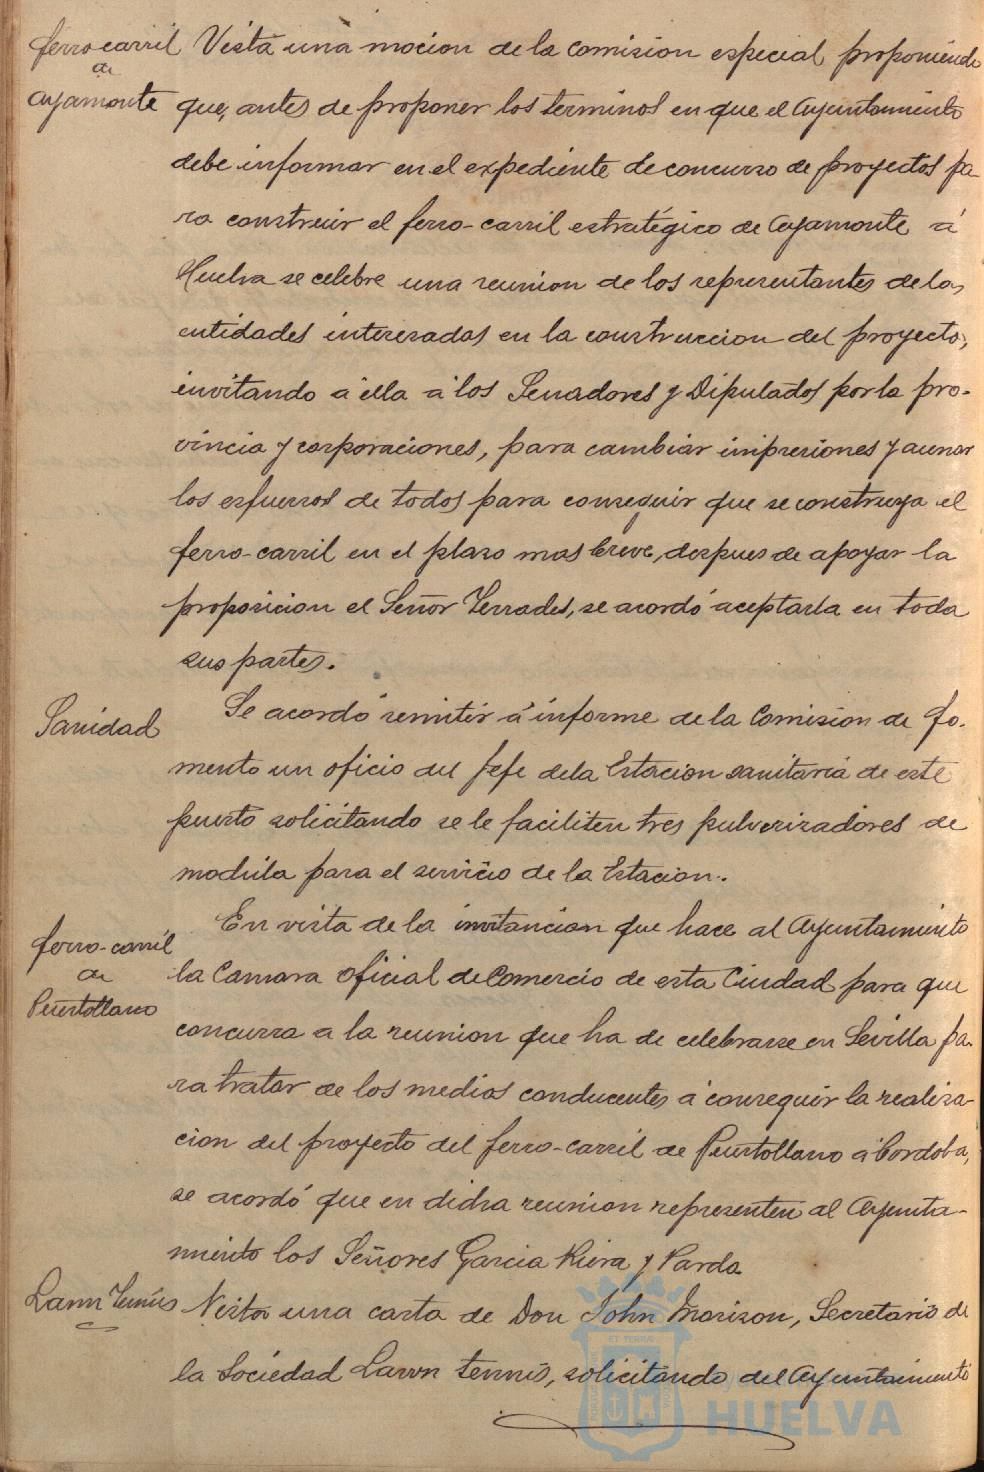 ferro carril Vista una mocion de la comision especial, proponiendo
de
ayamonte que, antes de proponer los terminos en que el Ayuntamiento
debe informar en el expediente de concurso de proyectos pa-
ra construir el ferro-carril estratégico de Ayamonte á
Huelva se celebre una reunion de los representantes de las
entidades interesadas en la construccion del proyecto,
invitando á ella á los Senadores y Diputados por la pro-
vincia y corporaciones, para cambiar impresiones y aunar
los esfuerzos de todos para conseguir que se construya el
ferro-carril en el plazo mas breve, despues de apoyar la
proposicion el Señor Terrades, se acordó aceptarla en toda
sus partes.
Sanidad Se acordó remitir á informe de la Comision de fo-
mento un oficio del Jefe de la Estacion sanitaria de este
puerto solicitando se le faciliten tres pulverizadores de
mochila para el servicio de la Estacion.
ferro-carril En vista de la invitancion que hace al Ayuntamiento
de
Puertollano la Camara oficial de Comercio de esta Ciudad para que
concurra a la reunion que ha de celebrarse en Sevilla pa-
ra tratar de los medios conducentes á conseguir la realiza-
cion del proyecto del ferro-carril de Puertollano á Cordoba,
se acordó que en dicha reunion representen al Ayunta-
miento los Señores Garcia Riera y Parda
Lawn Tennis Vista una carta de Don John Morison, Secretario de
la Sociedad Lawn tennis, solicitando del Ayuntamiento
HUELVA